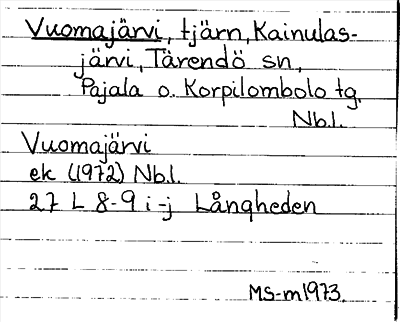 Vuomajärvi, tjärn, Kainulas-
järvi, Tärendö sn,
Pajala o. Korpilombolo tg.
Nb.l.
Vuomajärvi
ek (1972) Nb.l.
27 L 8-9 i-j Långheden
MS-m1973.